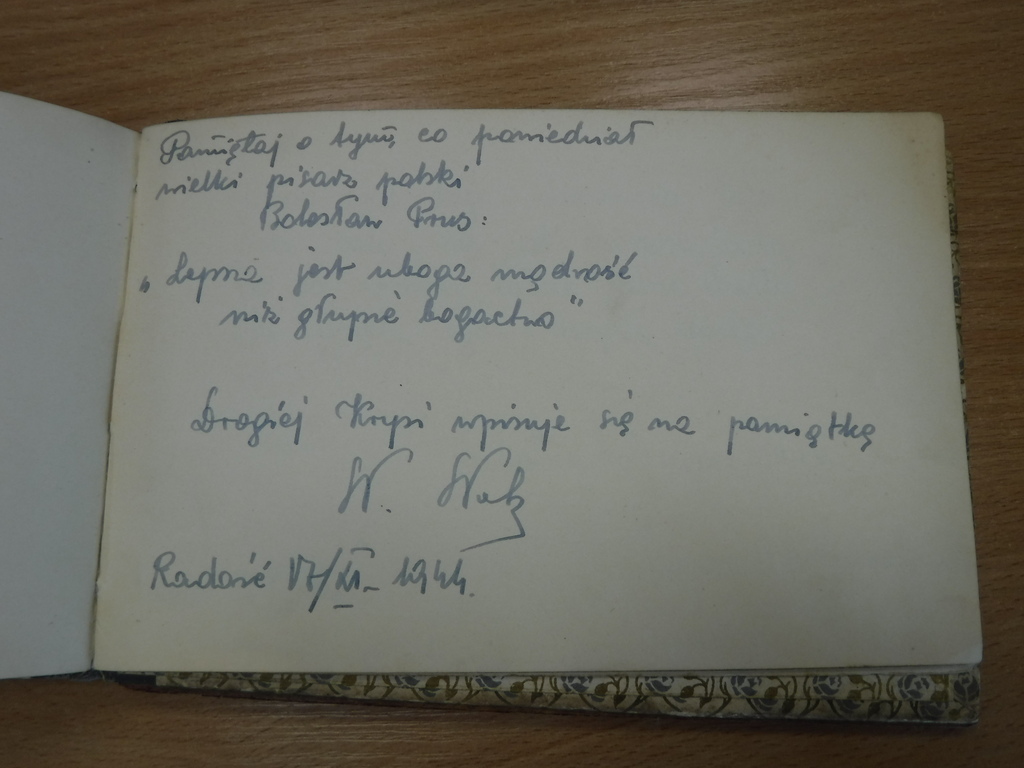 Pamiętaj o tym, co powiedział
wielki pisarz polski
Bolesław Prus:
„Lepsza jest uboga mądrość
niż głupie bogactwo"
Drogiej Krysi wpisuje się na pamiątkę
W.
Radość 17/XI- 1944.